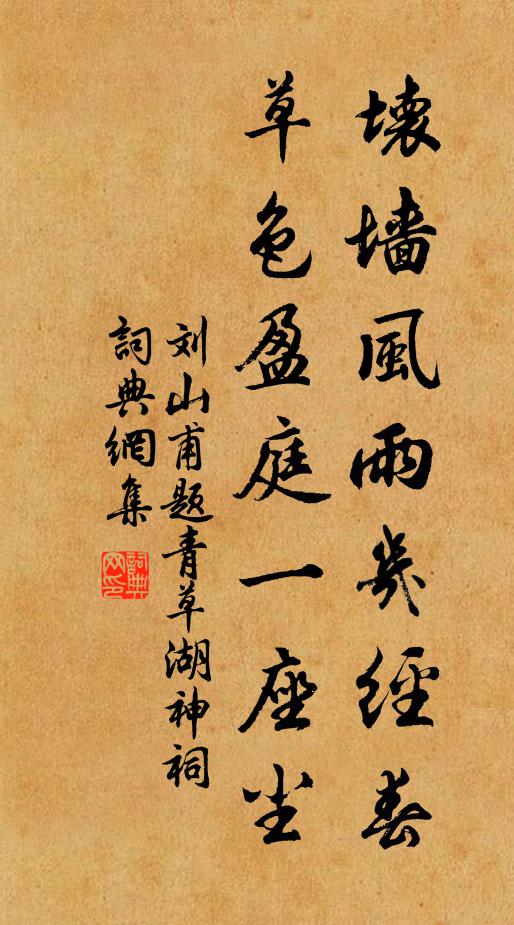 壞墻風雨幾經春
草色盈庭一座尘
刘山甫題青草湖神祠
詞典網集
詞典網印